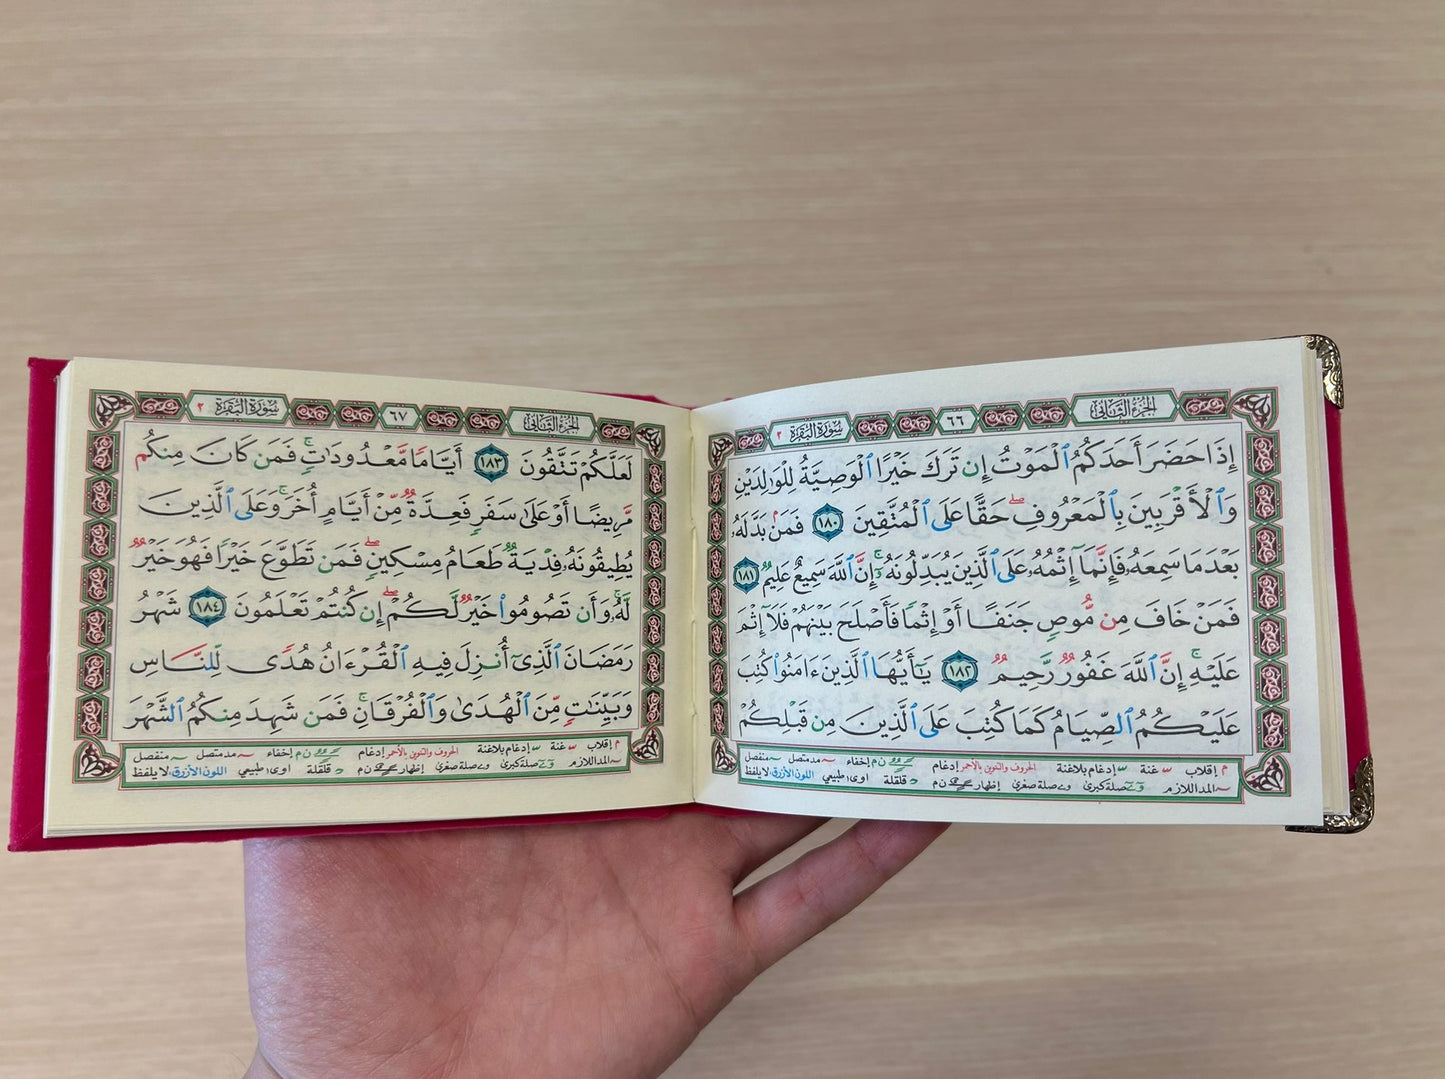 الجزء الثاني
٦٦
سورة البقرة ٢
إِذَا حَضَرَ أَحَدَكُمُ ٱلْمَوْتُ إِن تَرَكَ خَيْرًا ٱلْوَصِيَّةُ لِلْوَٰلِدَيْنِ
وَٱلْأَقْرَبِينَ بِٱلْمَعْرُوفِ ۖ حَقًّا عَلَى ٱلْمُتَّقِينَ ١٨٠ فَمَنۢ بَدَّلَهُۥ
بَعْدَمَا سَمِعَهُۥ فَإِنَّمَآ إِثْمُهُۥ عَلَى ٱلَّذِينَ يُبَدِّلُونَهُۥٓ ۚ إِنَّ ٱللَّهَ سَمِيعٌ عَلِيمٌ ١٨١
فَمَنْ خَافَ مِن مُّوصٍ جَنَفًا أَوْ إِثْمًا فَأَصْلَحَ بَيْنَهُمْ فَلَآ إِثْمَ
عَلَيْهِ ۚ إِنَّ ٱللَّهَ غَفُورٌ رَّحِيمٌ ١٨٢ يَٰٓأَيُّهَا ٱلَّذِينَ ءَامَنُوا۟ كُتِبَ
عَلَيْكُمُ ٱلصِّيَامُ كَمَا كُتِبَ عَلَى ٱلَّذِينَ مِن قَبْلِكُمْ
م إقلاب غنة إدغام بلاغنة الحروف والتنوين بالأحمر إدغام ن م إخفاء مد متصل منفصل
المد اللازم صلة كبرى صلة صغرى إظهار ن م قلقلة اوى طبيعي اللون الأزرق لا يلفظ
الجزء الثاني
٦٧
سورة البقرة ٢
لَعَلَّكُمْ تَتَّقُونَ ١٨٣ أَيَّامًا مَّعْدُودَٰتٍ ۚ فَمَن كَانَ مِنكُم
مَّرِيضًا أَوْ عَلَىٰ سَفَرٍ فَعِدَّةٌ مِّنْ أَيَّامٍ أُخَرَ ۚ وَعَلَى ٱلَّذِينَ
يُطِيقُونَهُۥ فِدْيَةٌ طَعَامُ مِسْكِينٍ ۖ فَمَن تَطَوَّعَ خَيْرًا فَهُوَ خَيْرٌ
لَّهُۥ ۚ وَأَن تَصُومُوا۟ خَيْرٌ لَّكُمْ ۖ إِن كُنتُمْ تَعْلَمُونَ ١٨٤ شَهْرُ
رَمَضَانَ ٱلَّذِىٓ أُنزِلَ فِيهِ ٱلْقُرْءَانُ هُدًى لِّلنَّاسِ
وَبَيِّنَٰتٍ مِّنَ ٱلْهُدَىٰ وَٱلْفُرْقَانِ ۚ فَمَن شَهِدَ مِنكُمُ ٱلشَّهْرَ
م إقلاب غنة إدغام بلاغنة الحروف والتنوين بالأحمر إدغام ن م إخفاء مد متصل منفصل
المد اللازم صلة كبرى صلة صغرى إظهار ن م قلقلة اوى طبيعي اللون الأزرق لا يلفظ